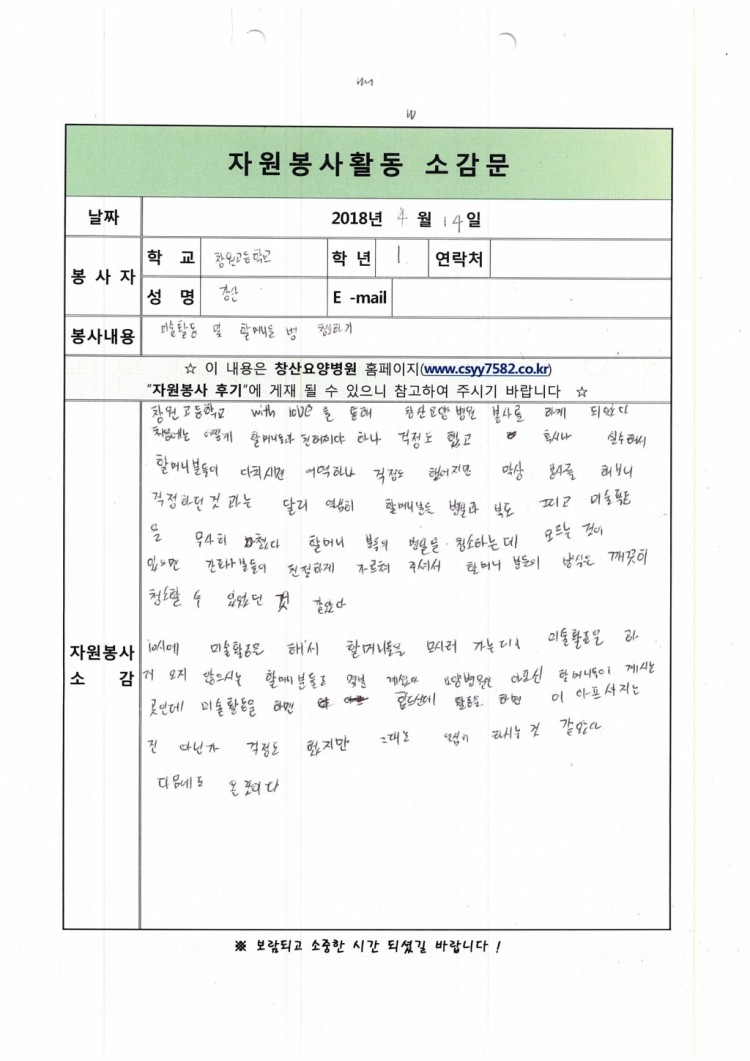 자원봉사활동 소감문
날짜 2018년 4 월 14일
봉사자 학 교 창원고등학교 학년 1 연락처
성 명 E -mail
봉사내용 미술활동 및 할머니들 방 청소하기
☆ 이 내용은 창산요양병원 홈페이지(www.csyy7582.co.kr)
"자원봉사 후기"에 게재 될 수 있으니 참고하여 주시기 바랍니다 ☆
자원봉사 소 감
창원고등학교 with love 를 통해 창산요양병원 봉사를 하게 되었다
처음에는 어떻게 할머니들과 친해져야 하나 걱정도 했고 혹시나 실수해서
할머니분들이 다치시면 어떡하나 걱정도 했어지만 막상 봉사를 해보니
걱정하던것 과는 달리 열심히 할머니분들 병실과 복도 그리고 미술활동
을 무사히 마쳤다 할머니 분들의 병실을 청소하는데 모르는 것이
있으면 간호사분들이 친절하게 가르쳐 주셔서 할머니 분들이 방식은 깨끗히
청소할 수 있었던 것 같았다
10시에 미술활동을 해서 할머니들을 모시러 가는데 미술활동을 하
러 오지 않으시는 할머니분들도 계셨다 요양병원은 아프신 할머니들이 계시는
곳인데 미술활동을 하면 힘드신데 활동을 하면 더 아프셔지는
건 아닌가 걱정도 했지만 그래도 열심히 하시는 것 같았다
다음에도 올 것이다
※ 보람되고 소중한 시간 되셨길 바랍니다 !